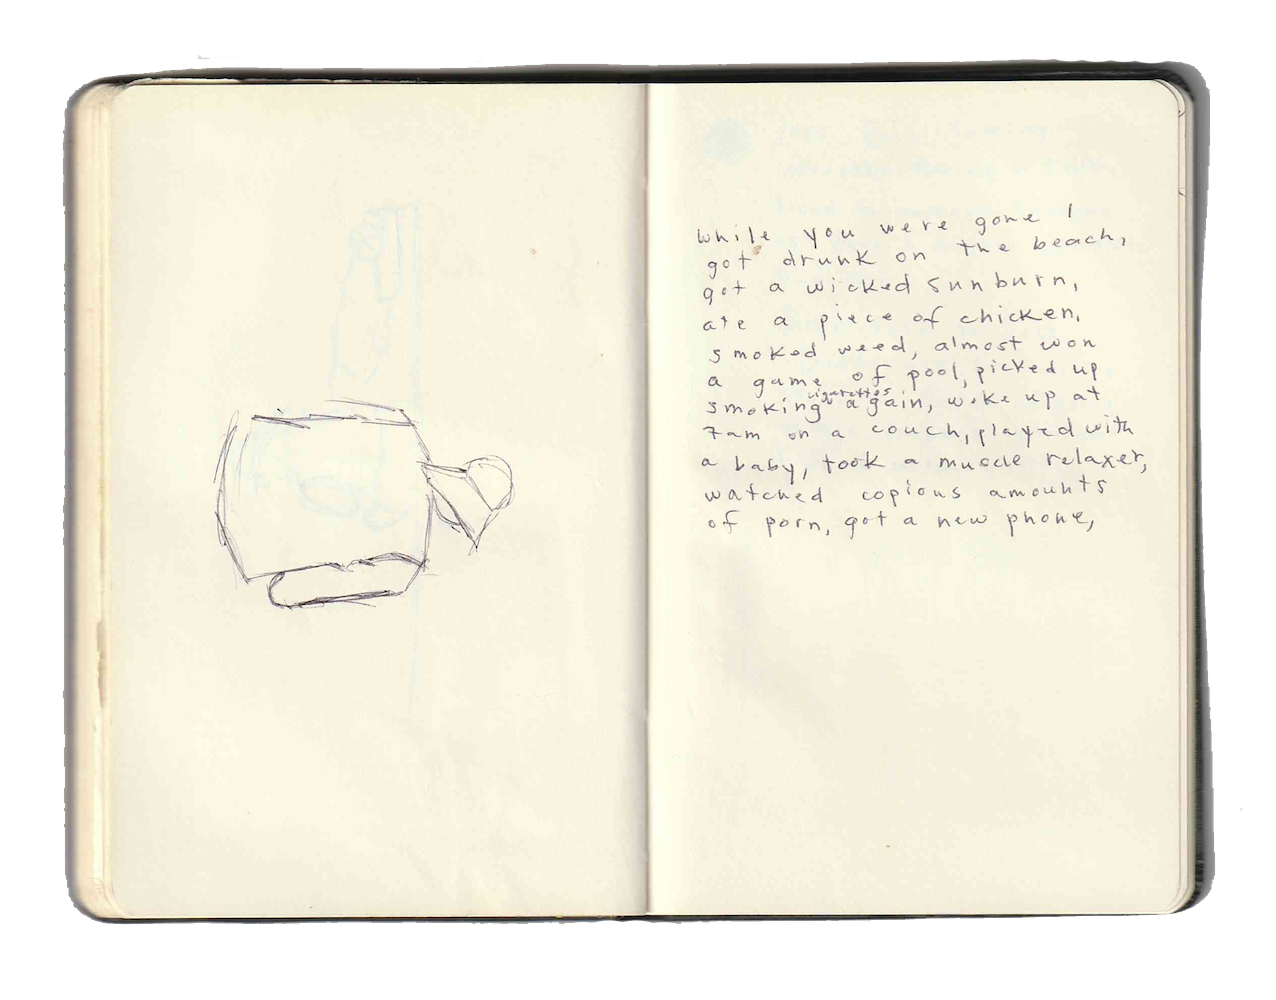 while you were gone I
got drunk on the beach,
got a wicked sunburn,
ate a piece of chicken,
smoked weed, almost won
a game of pool, picked up
smoking cigarettes again, woke up at
7am on a couch, played with
a baby, took a muscle relaxer,
watched copious amounts
of porn, got a new phone,